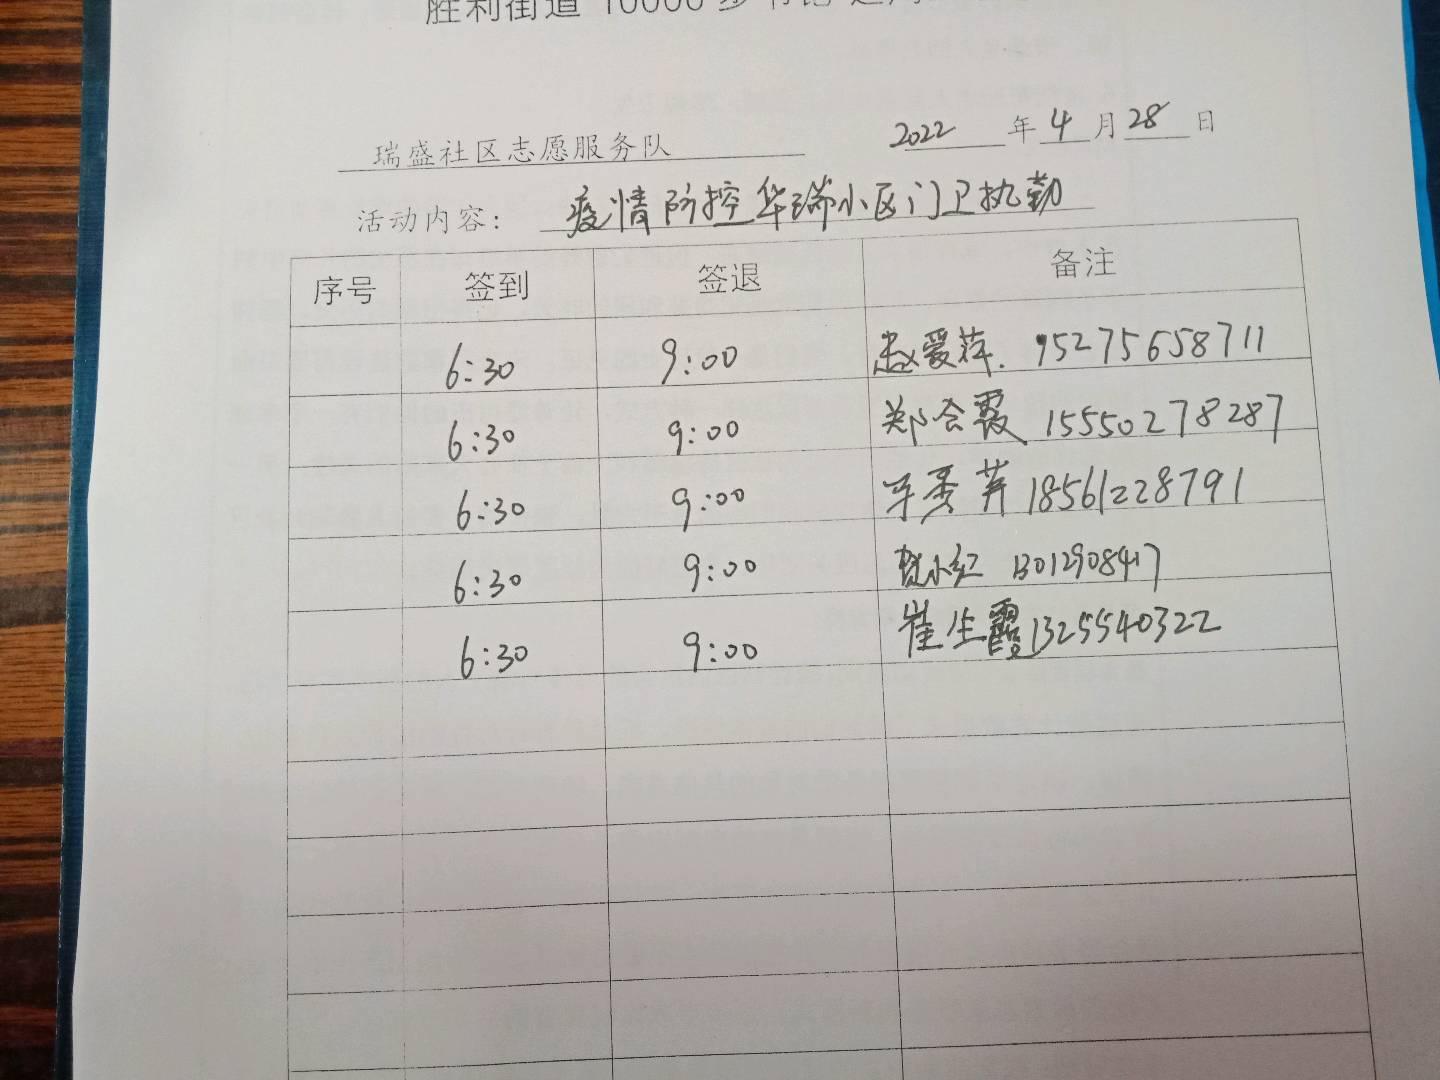 胜利街道 10000 步书馆
瑞盛社区志愿服务队 2022 年 4 月 28 日
活动内容: 疫情防控华瑞小区门卫执勤
序号 签到 签退 备注
6:30 9:00 赵爱萍. 15275658711
6:30 9:00 郑会霞 15550278287
6:30 9:00 18561228791
6:30 9:00 小红 13012908417
6:30 9:00 崔生霞 13255540322